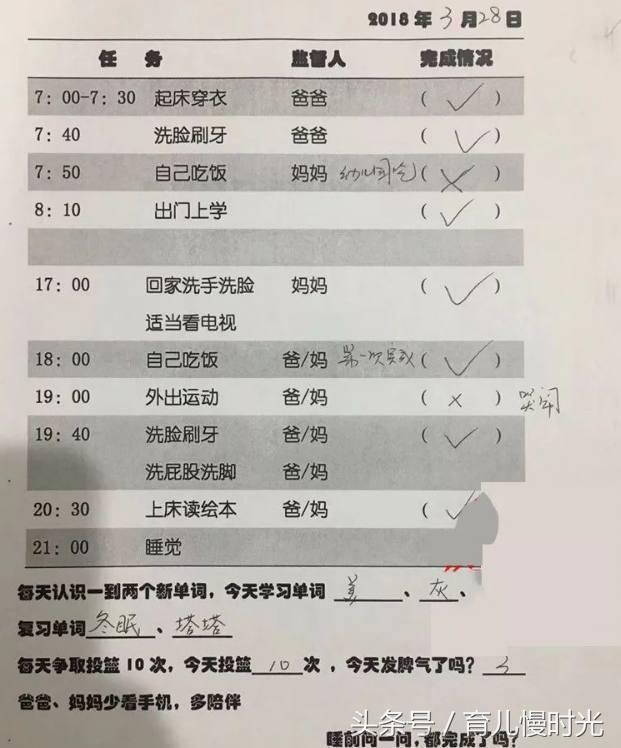 2018 年 3 月 28 日
任 务 监督人 完成情况
7：00-7：30 起床穿衣 爸爸 （ ✓ ）
7：40 洗脸刷牙 爸爸 （ ✓ ）
7：50 自己吃饭 妈妈 幼儿园吃 （ × ）
8：10 出门上学 （ ✓ ）
17：00 回家洗手洗脸 妈妈 （ ✓ ）
适当看电视
18：00 自己吃饭 爸/妈 第一次完成 （ ✓ ）
19：00 外出运动 爸/妈 （ × ） 哭闹
19：40 洗脸刷牙 爸/妈 （ ✓ ）
洗屁股洗脚 爸/妈
20：30 上床读绘本 爸/妈 （ ✓
21：00 睡觉
每天认识一到两个新单词，今天学习单词 美 、 灰 、
复习单词 冬眠 、 塔塔
每天争取投篮 10 次，今天投篮 10 次 ，今天发脾气了吗？ 3
爸爸、妈妈少看手机，多陪伴
睡前问一问，都完成了吗？
头条号 / 育儿慢时光